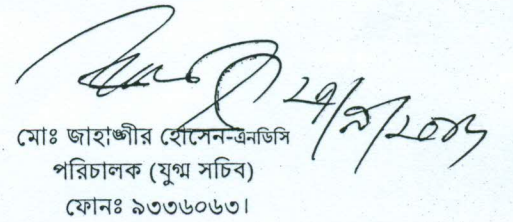 মোঃ জাহাঙ্গীর হোসেন-এনডিসি
পরিচালক (যুগ্ম সচিব)
ফোনঃ ৯৩৩৬০৬৩।